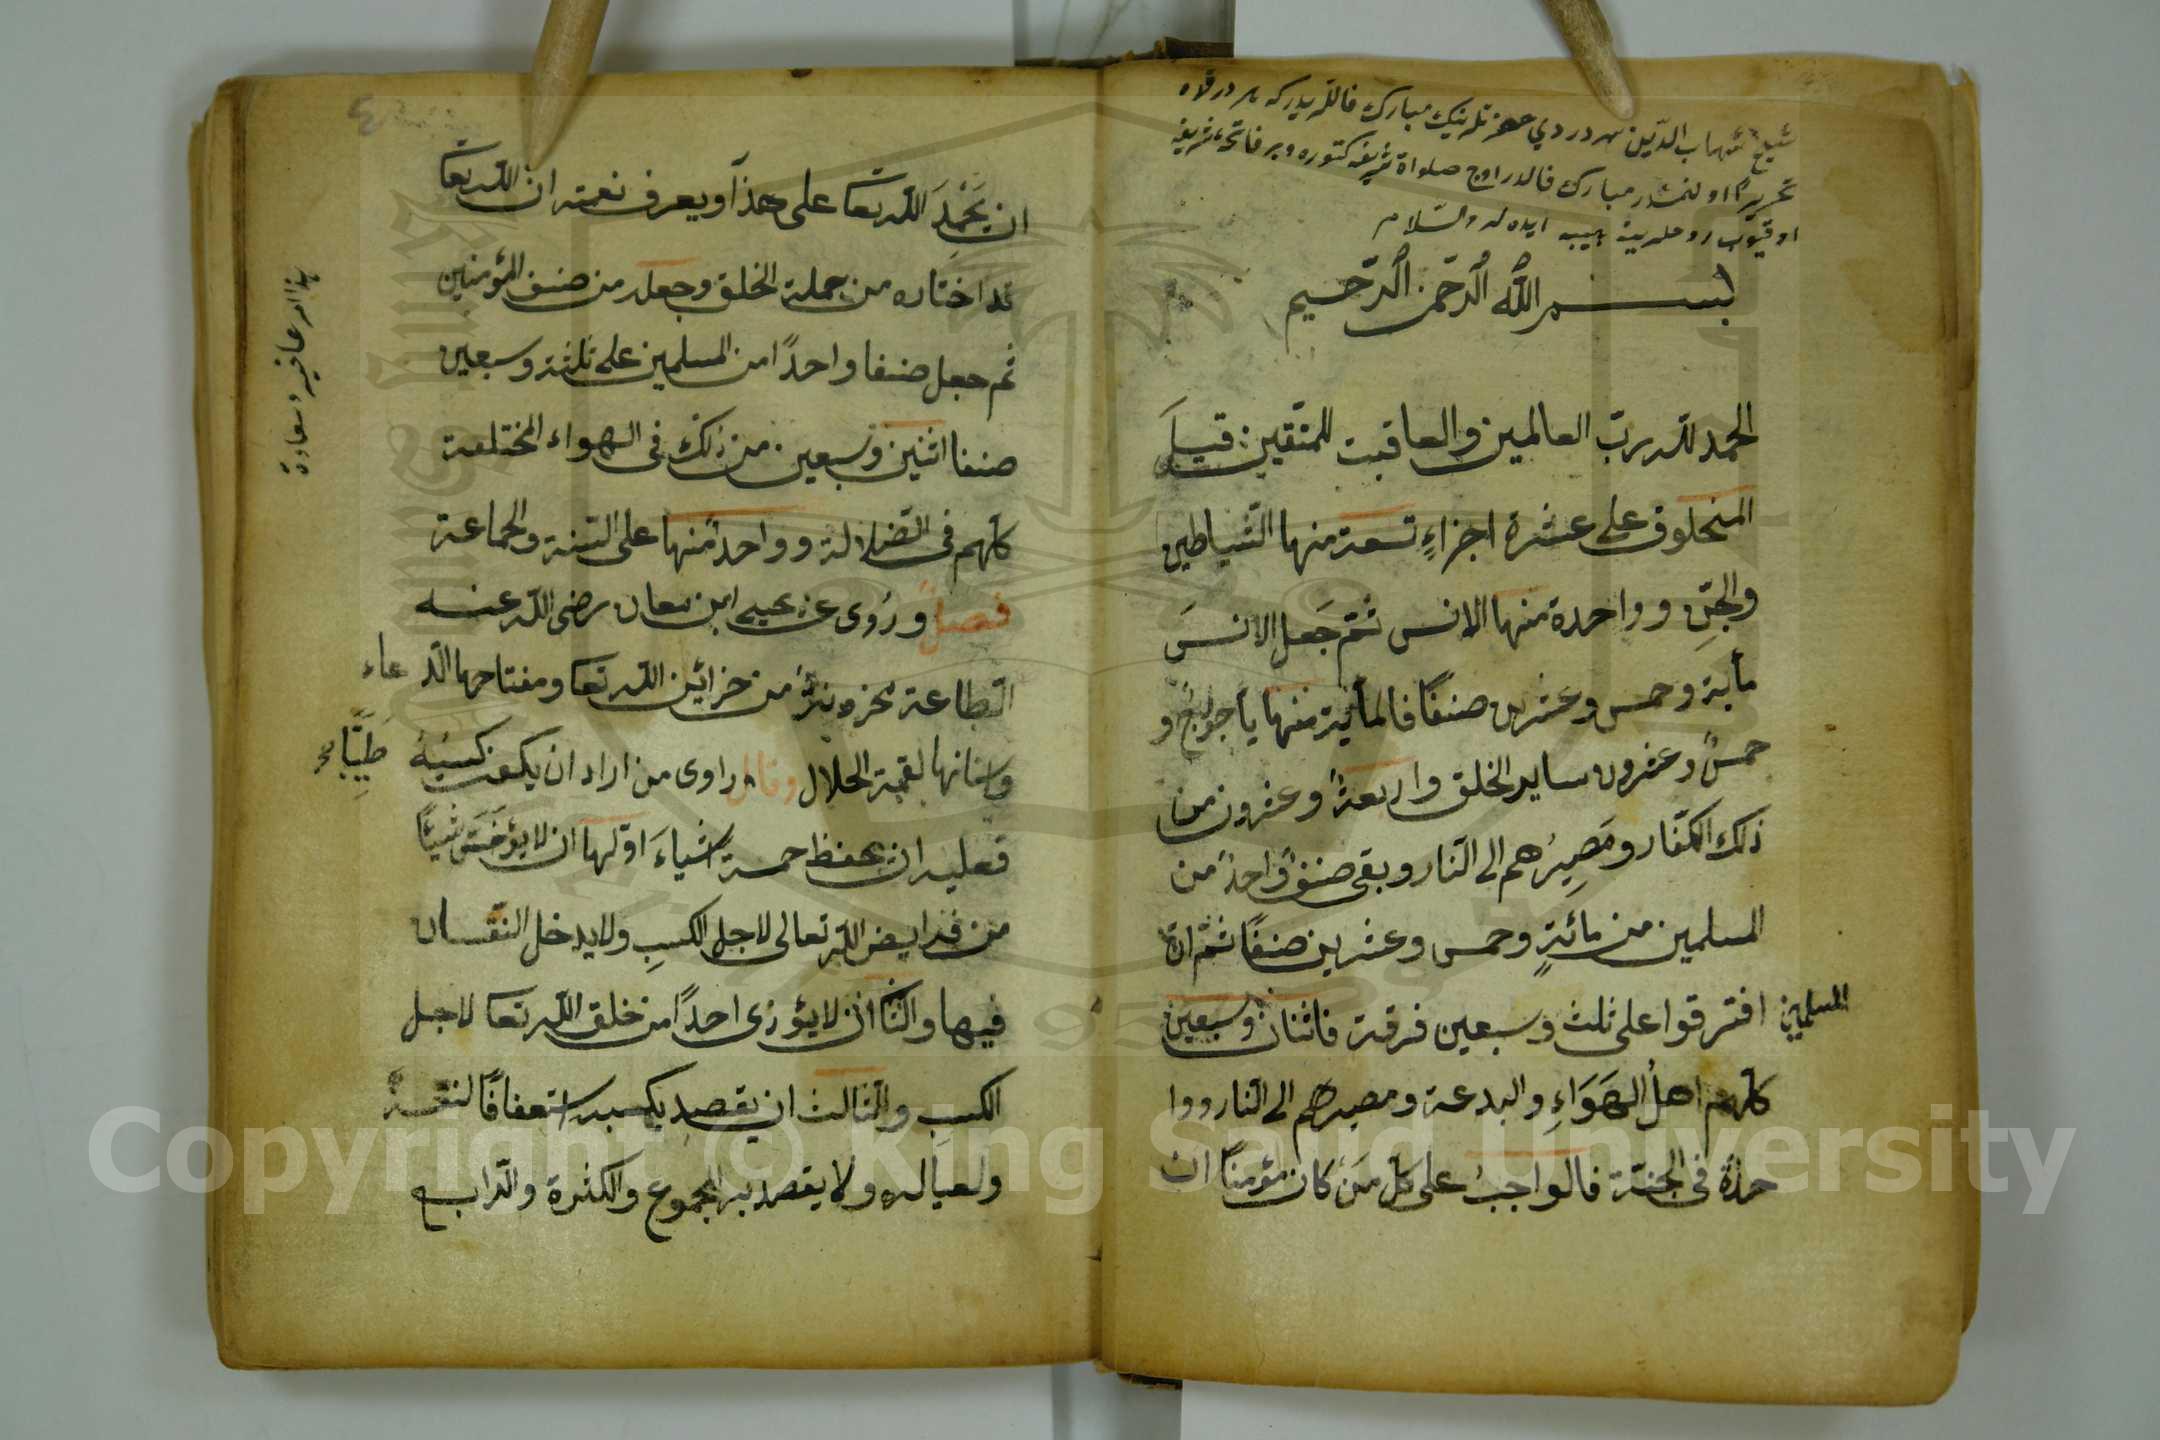 شيخ شهاب الدّين سهروردي حضرتلرينك مبارك فاللريدركه بر ورقاه
تحريرًا اولنمشدر مبارك فالدر اوچ صلواة شريفه كتوره وبر فاتحهٔ شريفه
اوقيوب روحلرينه هبه ايده لر والسّلام
بسم الله الرّحمن الرّحيم
الحمد للّه ربّ العالمين والعاقبت للمتّقين قيل
المخلوق على عشرة اجزاءٍ تسعة منها الشّياطين
والجنّ وواحدة منها الانس ثمّ جَعل الانسَ
مأية وخمس وعشرين صنفًا فالمأئية منها يأجوج و
خمسٌ وعشرون ساير الخلق واربعةٌ وعشرون من
ذلك الكفّار ومَصِيرُهم الى النّار وبقى صنفٌ واحدٌ من
المسلمين من مائةٍ وخمس وعشرين صنفًا ثمّ انّ
المسلمين افترقوا على ثلث وسبعين فرقة فاثنان وسبعين
كلّهم اهلُ الهَوَاءِ والبدعة ومصيرهم الى النار ووا
حدةٌ فى الجنّة فالواجبُ على كلّ مَن كان مؤمنًا ان
ان يَحْمِدَ اللّه تعا على هذا ويعرف نعمته ان اللّه تعا
قد اختاره من جملة الخلق وجعله من صنف المؤمنين
ثم جعل صنفا واحدًا من المسلمين على ثلثة وسبعين
صنفا اثنين وسبعين من ذلك فى الهواء المختلفة
كلّهم فى الضلالة وواحدٌ منها على السّنة والجماعة
فصل ورُوى عن يحيى ابن معان رضى اللّه عنه
الطاعة مخزونةٌ من خزائن اللّه تعا ومفتاحها الدّعاء
واسنانها لقمة الحلال وقال راوى من اراد ان يكون كسبُهُ طَيِّبًا
فعليه ان يحفظ خمسة اشياءَ اوّلها ان لا يؤخّرَ شيئًا
من فرايض اللّه تعالى لاجل الكسبِ ولا يدخل النّقصان
فيها والثّانى ان لا يؤذى احدًا من خلق اللّه تعا لاجل
الكسبِ والثّالث ان يقصدِ بكسبه استعفافًا لنفسه
ولعياله ولا يقصد به الجموع والكثرة والرّابع